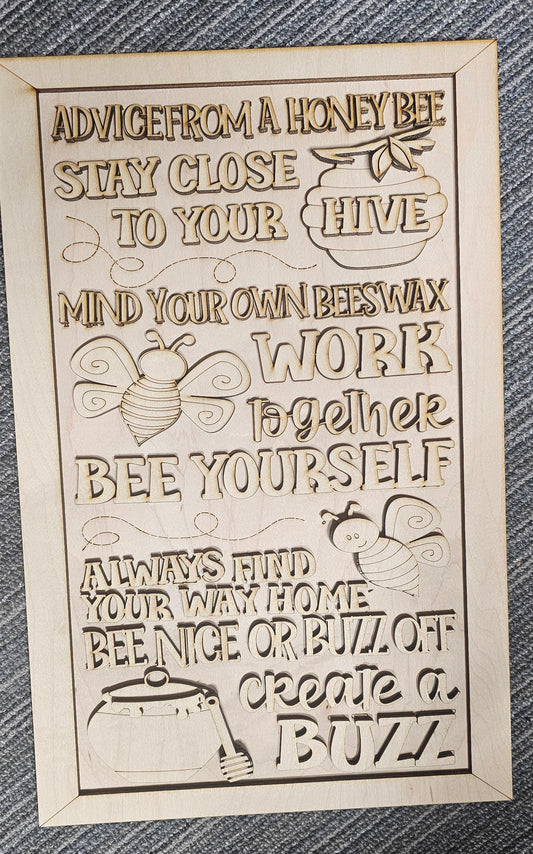 ADVICE FROM A HONEY BEE
STAY CLOSE
TO YOUR HIVE
MIND YOUR OWN BEESWAX
WORK
together
BEE YOURSELF
ALWAYS FIND
YOUR WAY HOME
BEE NICE OR BUZZ OFF
create a
BUZZ